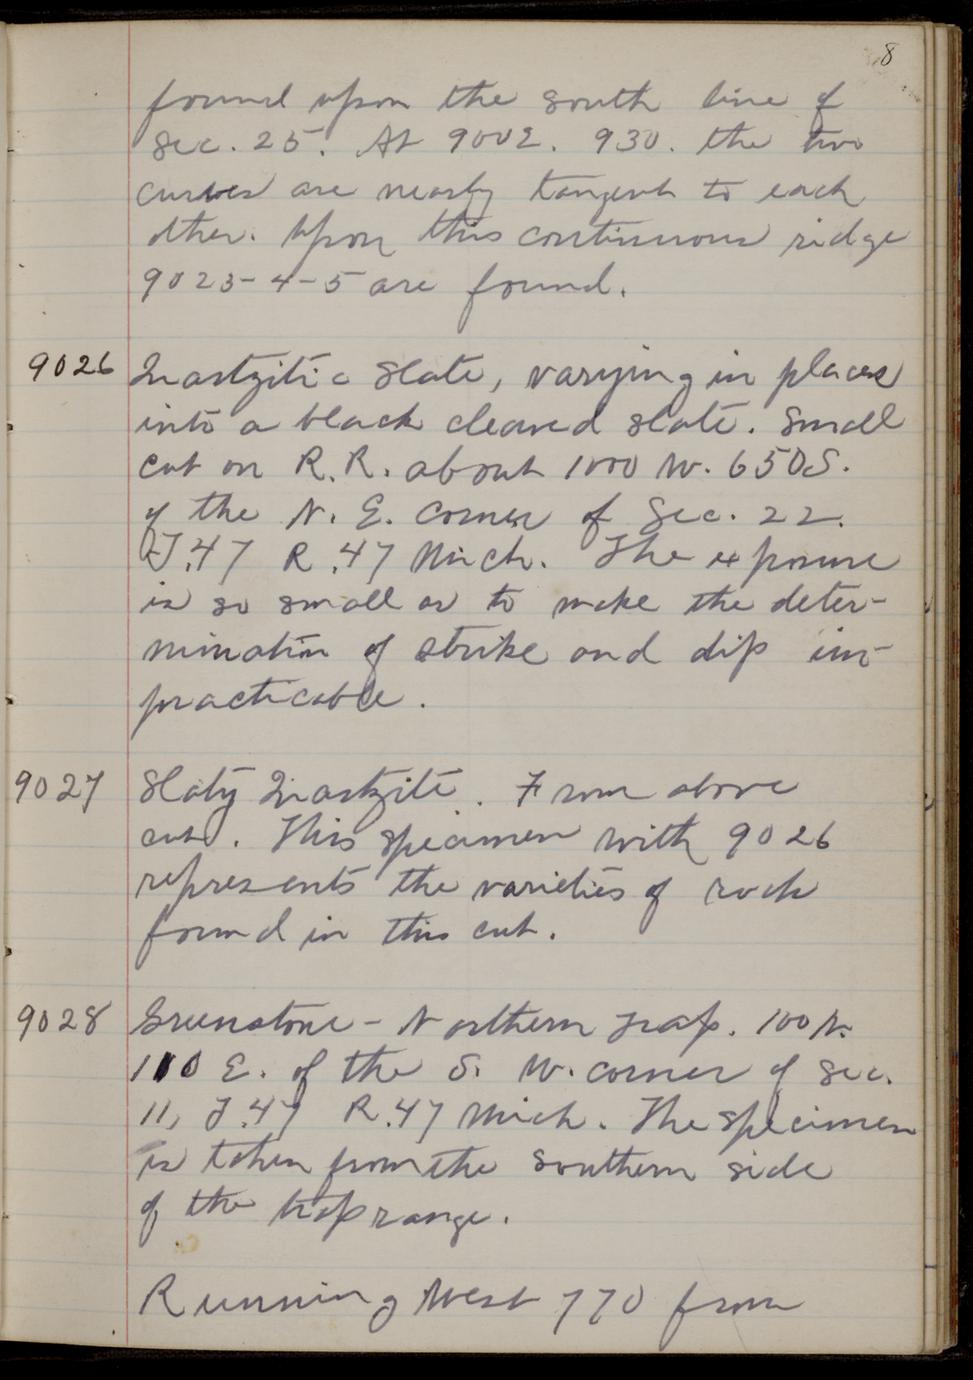 8
found upon the south line of
Sec. 25. At 900 E. 930. the two
curves are nearly tangent to each
other. Upon this continuous ridge
9023-4-5 are found.
9026 Quartzitic Slate, varying in places
into a black cleaved slate. Small
cut on R.R. about 1000 W. 650 S.
of the N. E. corner of Sec. 22.
T.47 R.47 Mich. The exposure
is so small as to make the deter-
mination of strike and dip im-
practicable.
9027 Slaty Quartzite. From above
cut. This specimen with 9026
represents the varieties of rock
found in this cut.
9028 Greenstone - Northern Trap. 100 N.
110 E. of the S. W. corner of Sec.
11, T.47 R.47 Mich. The specimen
is taken from the southern side
of the trap range.
Running West 770 from